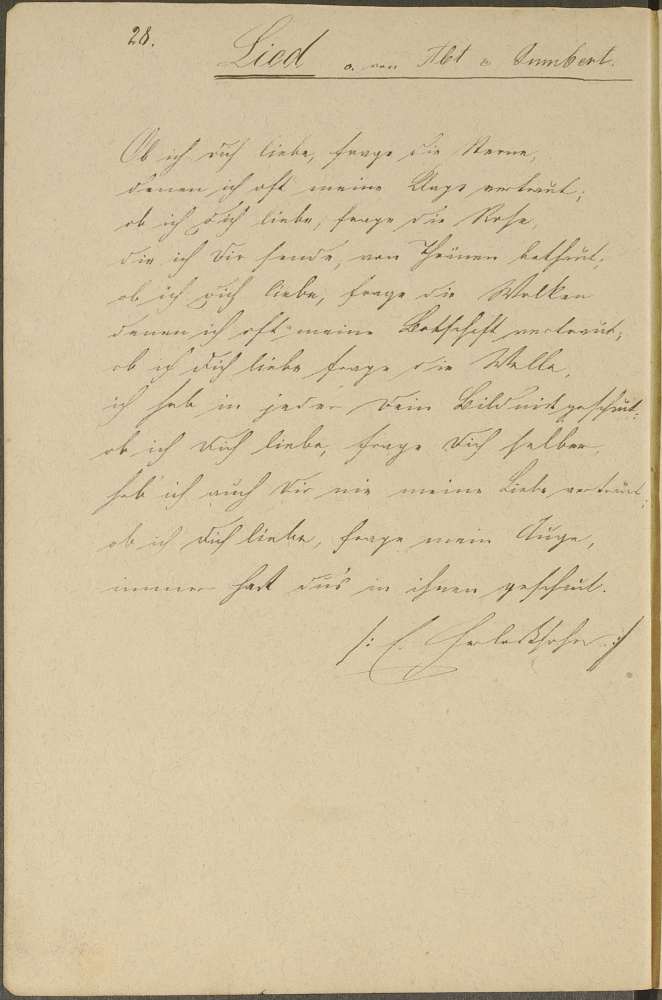 28.
Lied v. von Abt u Gumbert.
Ob ich dich liebe, frage die Sterne,
denen ich oft meine Klage vertraut;
ob ich dich liebe, frage die Rose,
die ich Dir sende, von Thränen bethaut;
ob ich dich liebe, frage die Wolken
denen ich oft meine Botschaft vertraut;
ob ich Dich liebe frage die Welle,
ich hab in jeder Dein Bildniß geschaut;
ob ich Dich liebe, frage Dich selber,
hab ich auch Dir nie meine Liebe vertraut;
ob ich Dich liebe, frage mein Auge,
immer hast du's in ihnen geschaut.
/: C. Herloßsohn :/